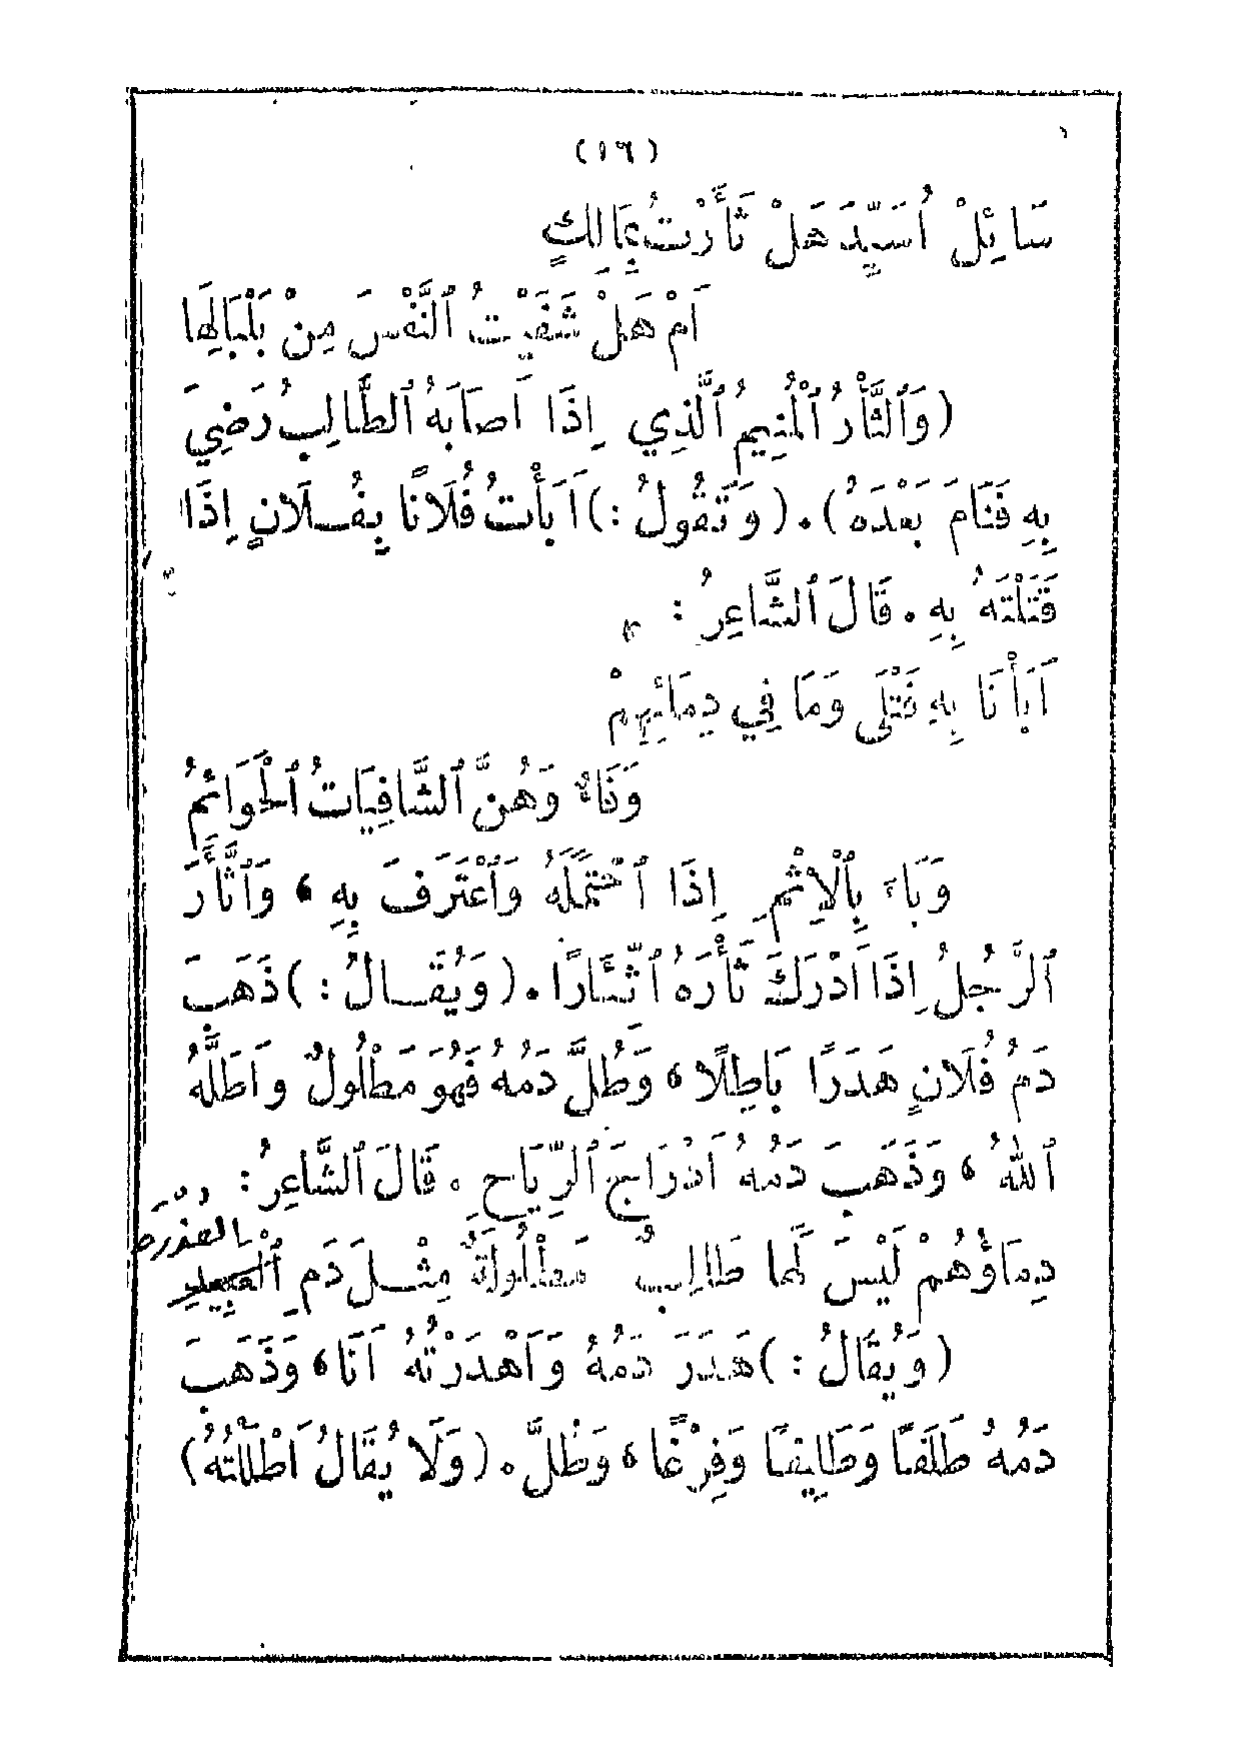 (١٦)
سَائِلْ أُسَيِّدَ هَلْ ثَأَرْتُ بِمَالِكٍ
أَمْ هَلْ شَفَيْتُ ٱلنَّفْسَ مِنْ بَلْبَالِهَا
(وَٱلثَّأْرُ ٱلْمُنِيمُ ٱلَّذِي إِذَا أَصَابَهُ ٱلطَّالِبُ رَضِيَ
بِهِ فَنَامَ بَعْدَهُ). (وَتَقُولُ:) أَبَأْتُ فُلَانًا بِفُلَانٍ إِذَا
قَتَلْتَهُ بِهِ. قَالَ ٱلشَّاعِرُ:
أَبَأْنَا بِهِ قَتْلَى وَمَا فِي دِمَائِهِمْ
وَفَاءٌ وَهُنَّ ٱلشَّافِيَاتُ ٱلْحَوَائِمُ
وَبَاءَ بِٱلْإِثْمِ إِذَا ٱحْتَمَلَهُ وَٱعْتَرَفَ بِهِ، وَٱثَّأَرَ
ٱلرَّجُلُ إِذَا أَدْرَكَ ثَأْرَهُ ٱثِّئَارًا. (وَيُقَالُ:) ذَهَبَ
دَمُ فُلَانٍ هَدَرًا بَاطِلًا، وَطُلَّ دَمُهُ فَهُوَ مَطْلُولٌ وَأَطَلَّهُ
ٱللهُ، وَذَهَبَ دَمُهُ أَدْرَاجَ ٱلرِّيَاحِ. قَالَ ٱلشَّاعِرُ:
دِمَاؤُهُمْ لَيْسَ لَهَا طَالِبٌ مَطْلُولَةٌ مِثْلَ دَمِ ٱلْعَبِيدِ
(وَيُقَالُ:) هَدَرَ دَمُهُ وَأَهْدَرْتُهُ أَنَا، وَذَهَبَ
دَمُهُ طَلَفًا وَطَلِيفًا وَفِرْغًا، وَطُلَّ. (وَلَا يُقَالُ أَطْلَلْتُهُ)